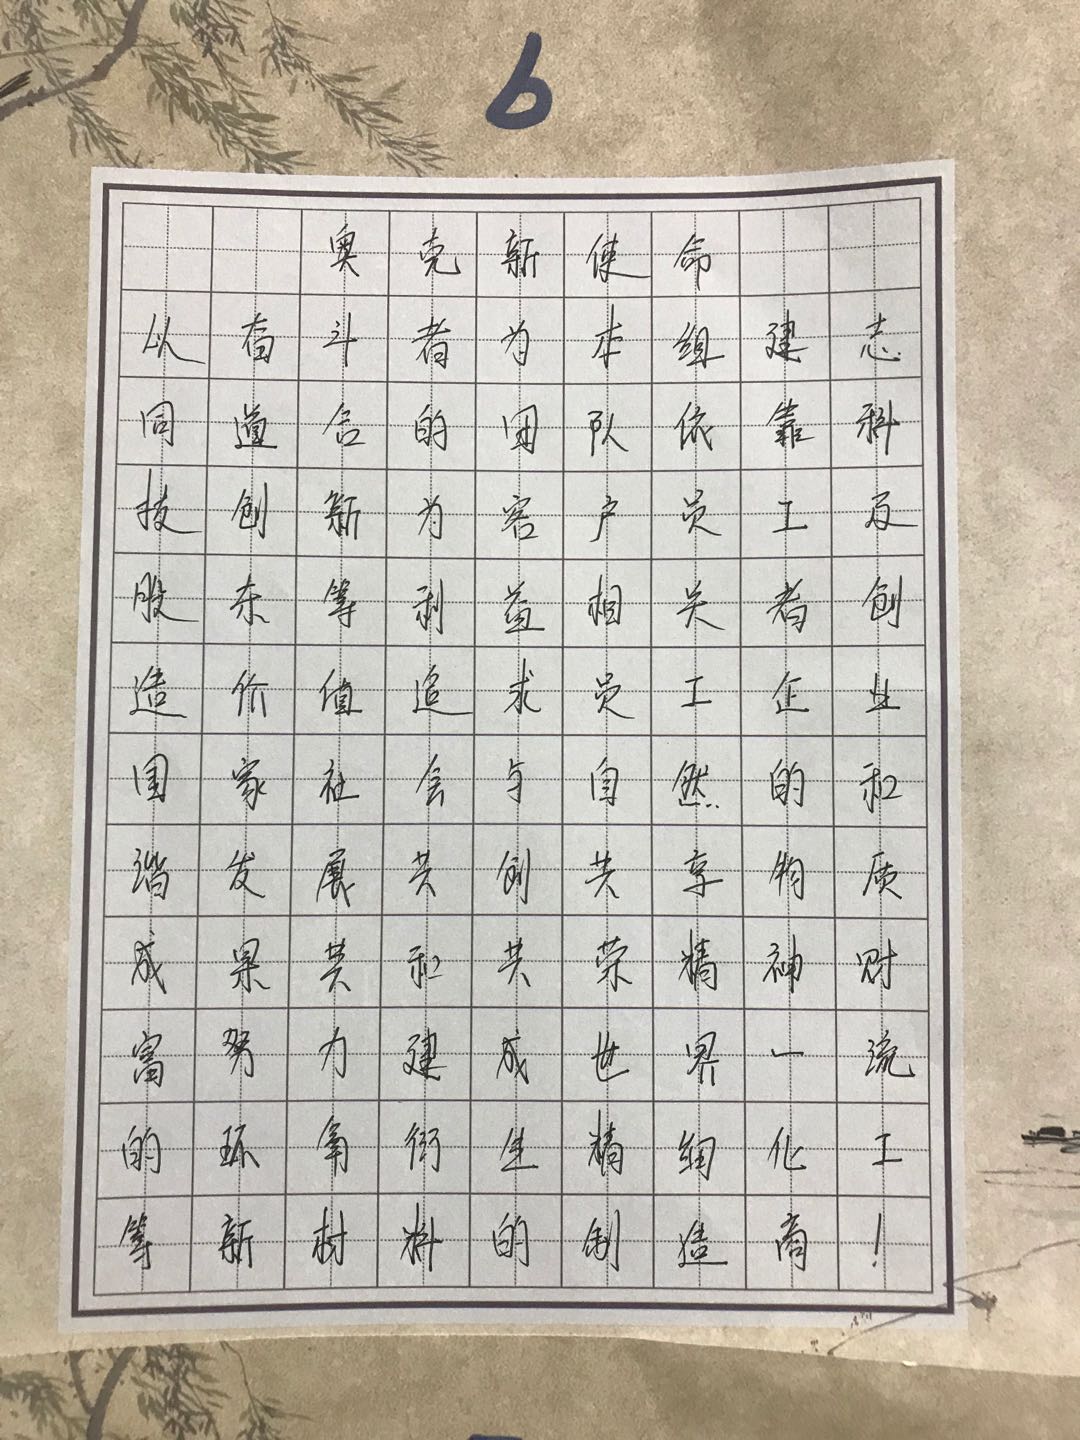 6
奥克新使命
以奋斗者为本组建志
同道合的团队依靠科
技创新为客户员工及
股东等利益相关者创
造价值追求员工企业
国家社会与自然的和
谐发展共创共享物质
成果共和共荣精神财
富努力建成世界一流
的环氧衍生精细化工
等新材料的制造商！